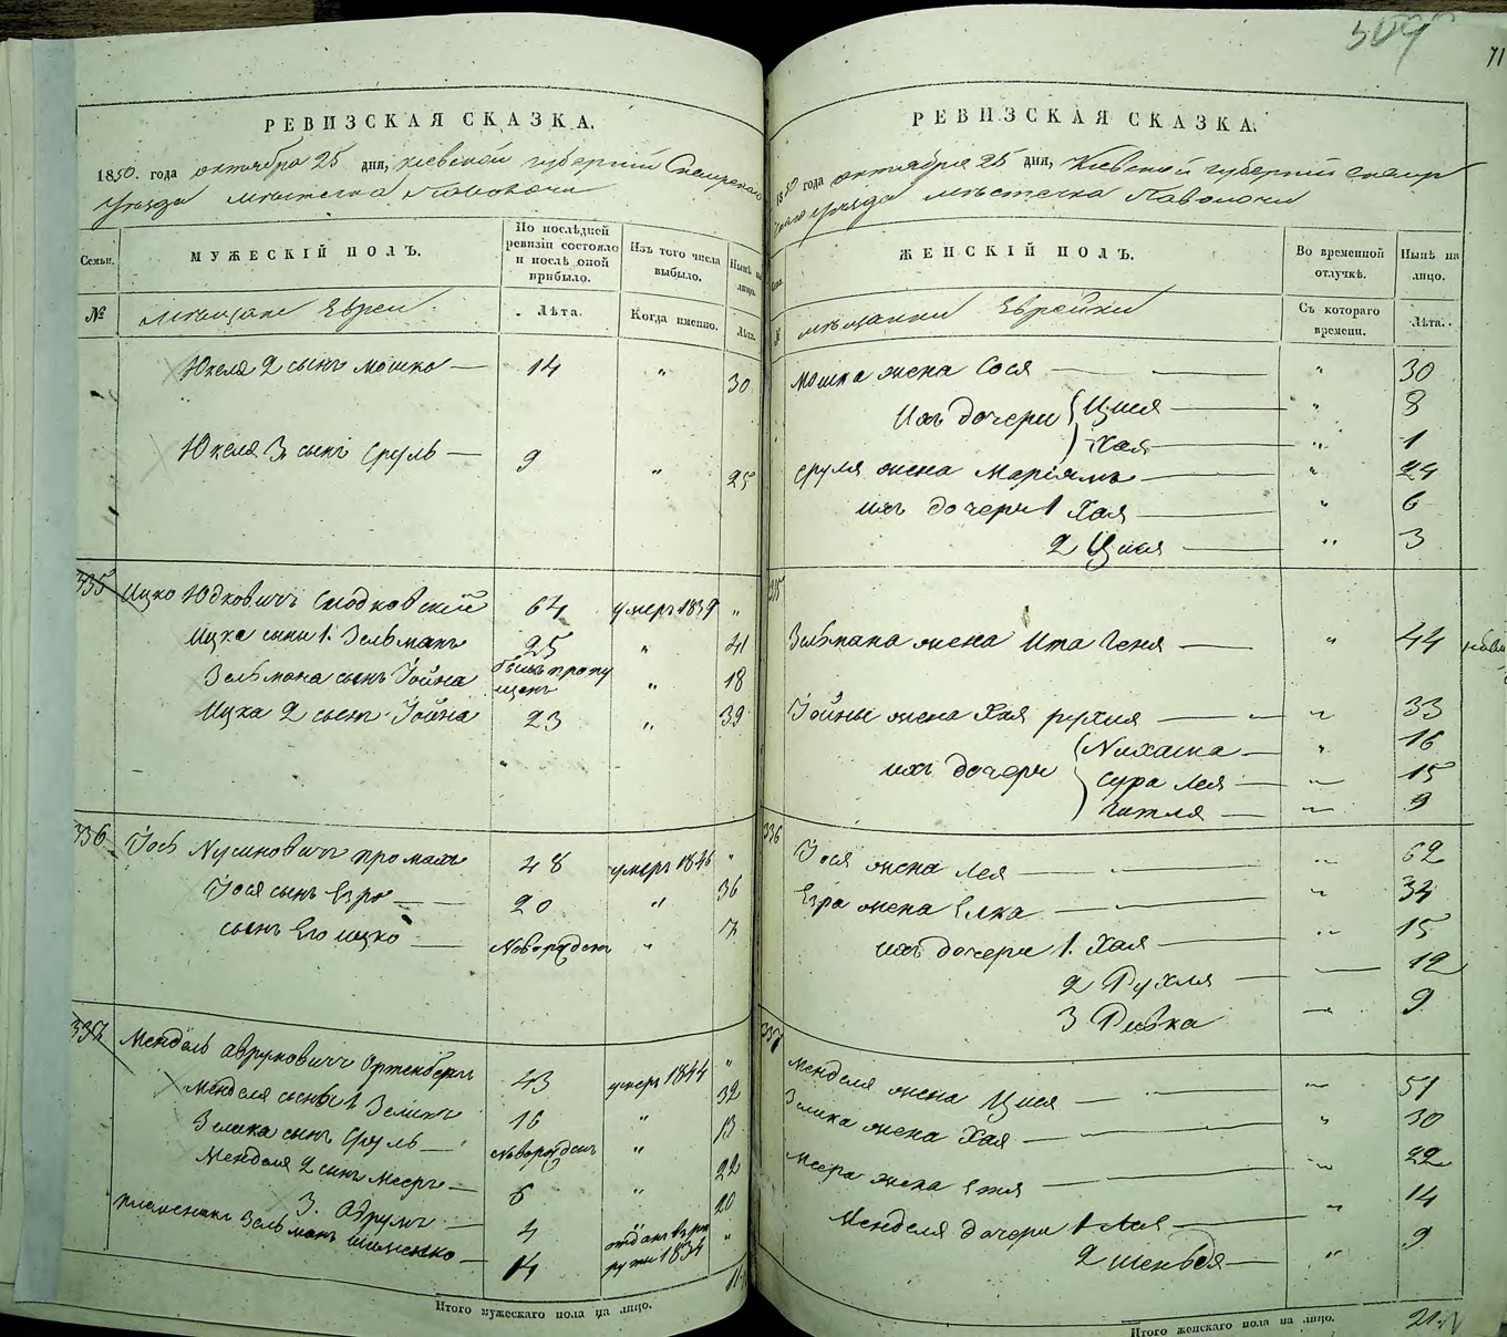 РЕВИЗСКАЯ СКАЗКА.
1850. года октября 25 дня, Кіевской губерніи Сквирскаго
Уезда местечка Паволочи
Семьи.
МУЖЕСКІЙ ПОЛЪ.
По послѣдней ревизіи состояло и послѣ оной прибыло.
Изъ того числа выбыло.
Нынѣ на лицо.
№
мещане Евреи
Лѣта.
Когда именно.
Лѣта.
Юкеля 2 сынъ Мошко — 14 " 30
Юкеля 3 сынъ Сруль — 9 " 25
335 Ицко Юдковичъ 64 умеръ 1839 "
Ицка сыны 1. Зельманъ 25 " 41
Зельмана сынъ Іойна былъ пропущенъ " 18
Ицка 2 сынъ Іойна 23 " 39
336 Іось Нусиновичъ 48 умеръ 1846 "
Іося сынъ Езро — 20 " 36
сынъ Его Ицко — Новорожденъ " 7
337 Мендель Аврумовичъ Ортенбергъ 43 умеръ 1844 "
Менделя сыны 1. Зеликъ 16 " 32
Зелика сынъ Сруль — Новорожденъ " 13
Менделя 2 сынъ Мееръ — 6 " 22
3. Аврумъ — 4 20
племеникъ Зельманъ — 14 отданъ въ рекруты 1834 "
Итого мужескаго пола на лицо.
71
РЕВИЗСКАЯ СКАЗКА.
1850 года октября 25 дня, Кіевской губерніи Сквирскаго уезда местечка Паволочи
ЖЕНСКІЙ ПОЛЪ.
Во временной отлучкѣ.
Нынѣ на лицо.
№
мещанки Еврейки
Съ котораго времени.
Лѣта.
Мошка жена Сося — " 30
Ихъ дочери Ципя — " 8
Хая — " 1
Сруля жена Маріямъ — " 24
ихъ дочери 1 Хая — " 6
2 Ципя — " 3
335
Зельмана жена Ита Геня — " 44
Іойны жена Хая Рухля — " 33
ихъ дочери " 16
Сура Лея — " 15
Гитля — " 9
336 Іося жена Лея — " 62
Езра жена Елка — " 34
ихъ дочери 1. Хая — " 15
2 Рухля — 12
3 Ривка " 9
337 Менделя жена Ципя — " 51
Зелика жена Хая — " 30
Меера жена — " 22
Менделя дочери 1 Лея — " 14
2 — " 9
Итого женскаго пола на лицо. 21